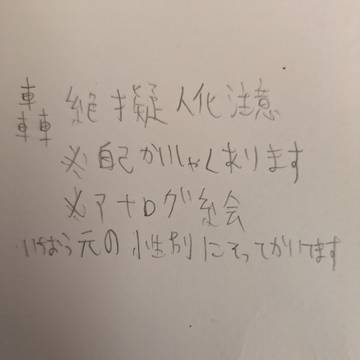 轟絶擬人化注意
※自己かいしゃくあります
※アナログ絵
いちおう元の性別にそってかいてます